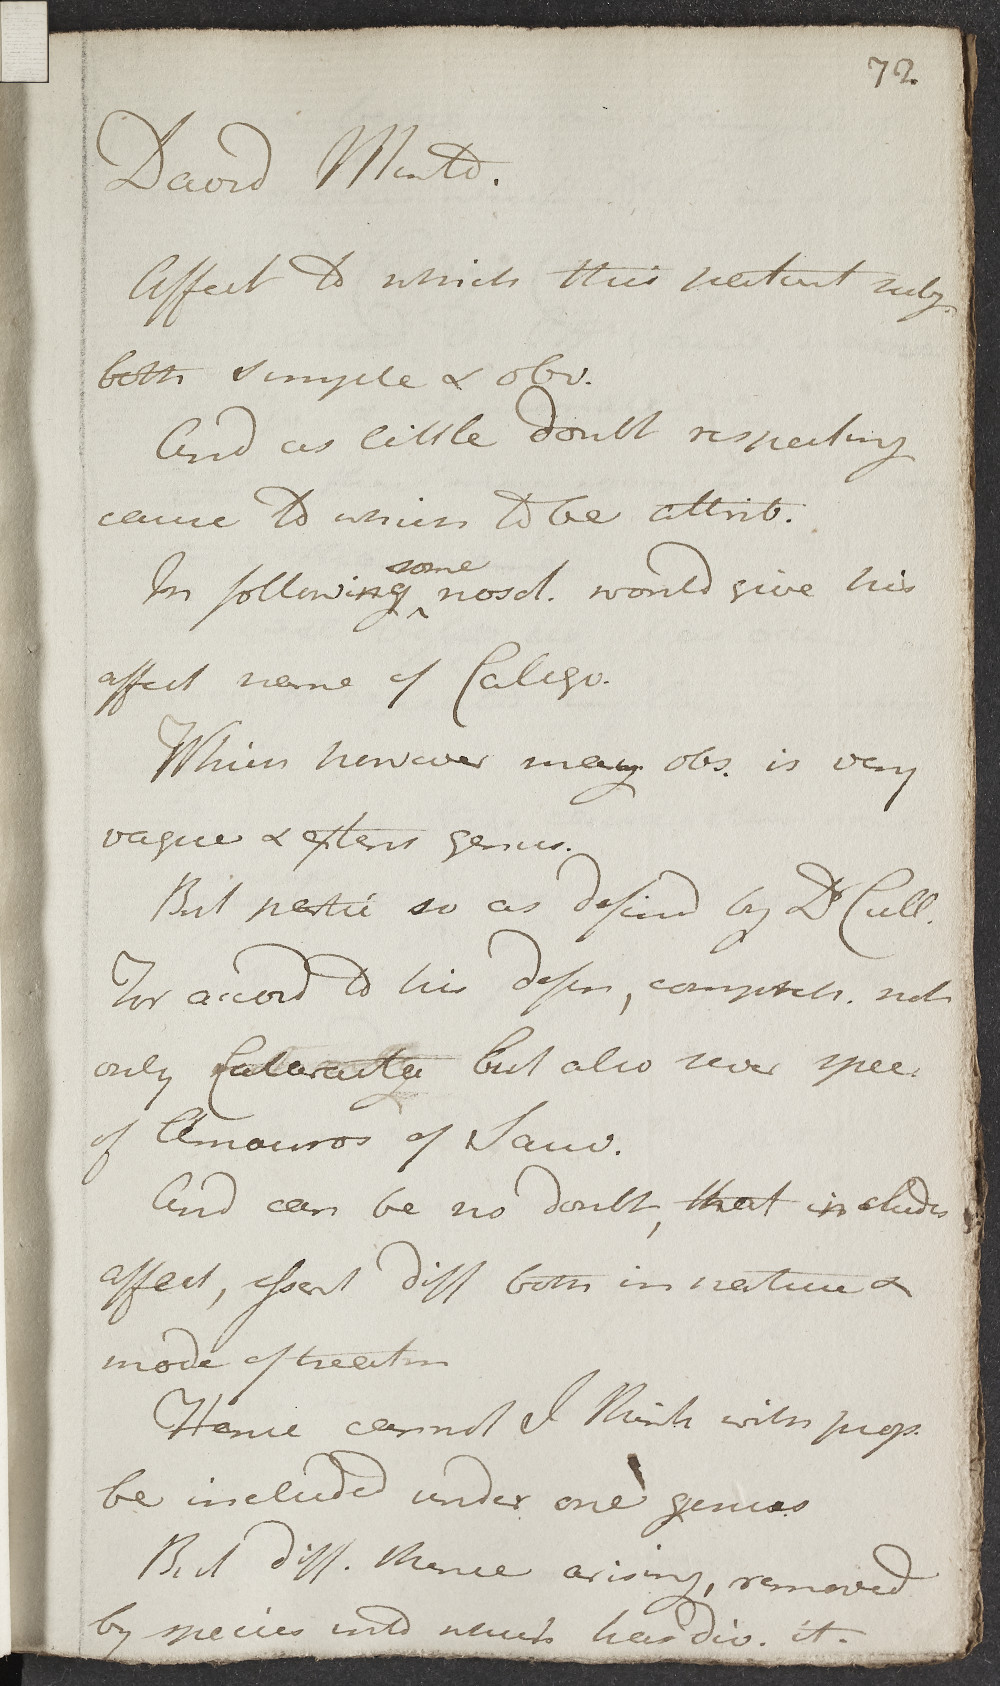 72.
David Minto.
Affect to which this patient subj.
both simple & obv.
And as little doubt respecting
cause to which to be attrib.
some
In following nosol. would give his
affect name of Caligo.
Which however may obs. is very
vague & extens genus.
But partic so as defind by Dr Cull.
For accord to his defin, compreh. not
only Cataracta but also sever spec.
of Amauros of Sauv.
And can be no doubt, that includes
affect, essent diff both in nature &
mode of treatm
Hence cannot I think with prop.
be included under one genus
But diff. thence arising, removed
by species into which has div. it.